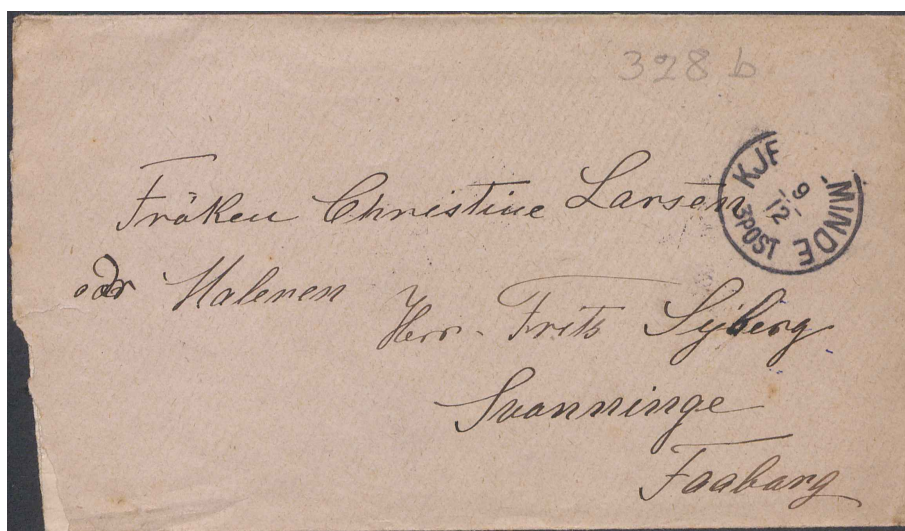 328 b
KJE MINDE
9
12
3 POST
Fröken Christine Larsen
adr Maleren
Herr. Fritz Syberg
Svanninge
Faaborg